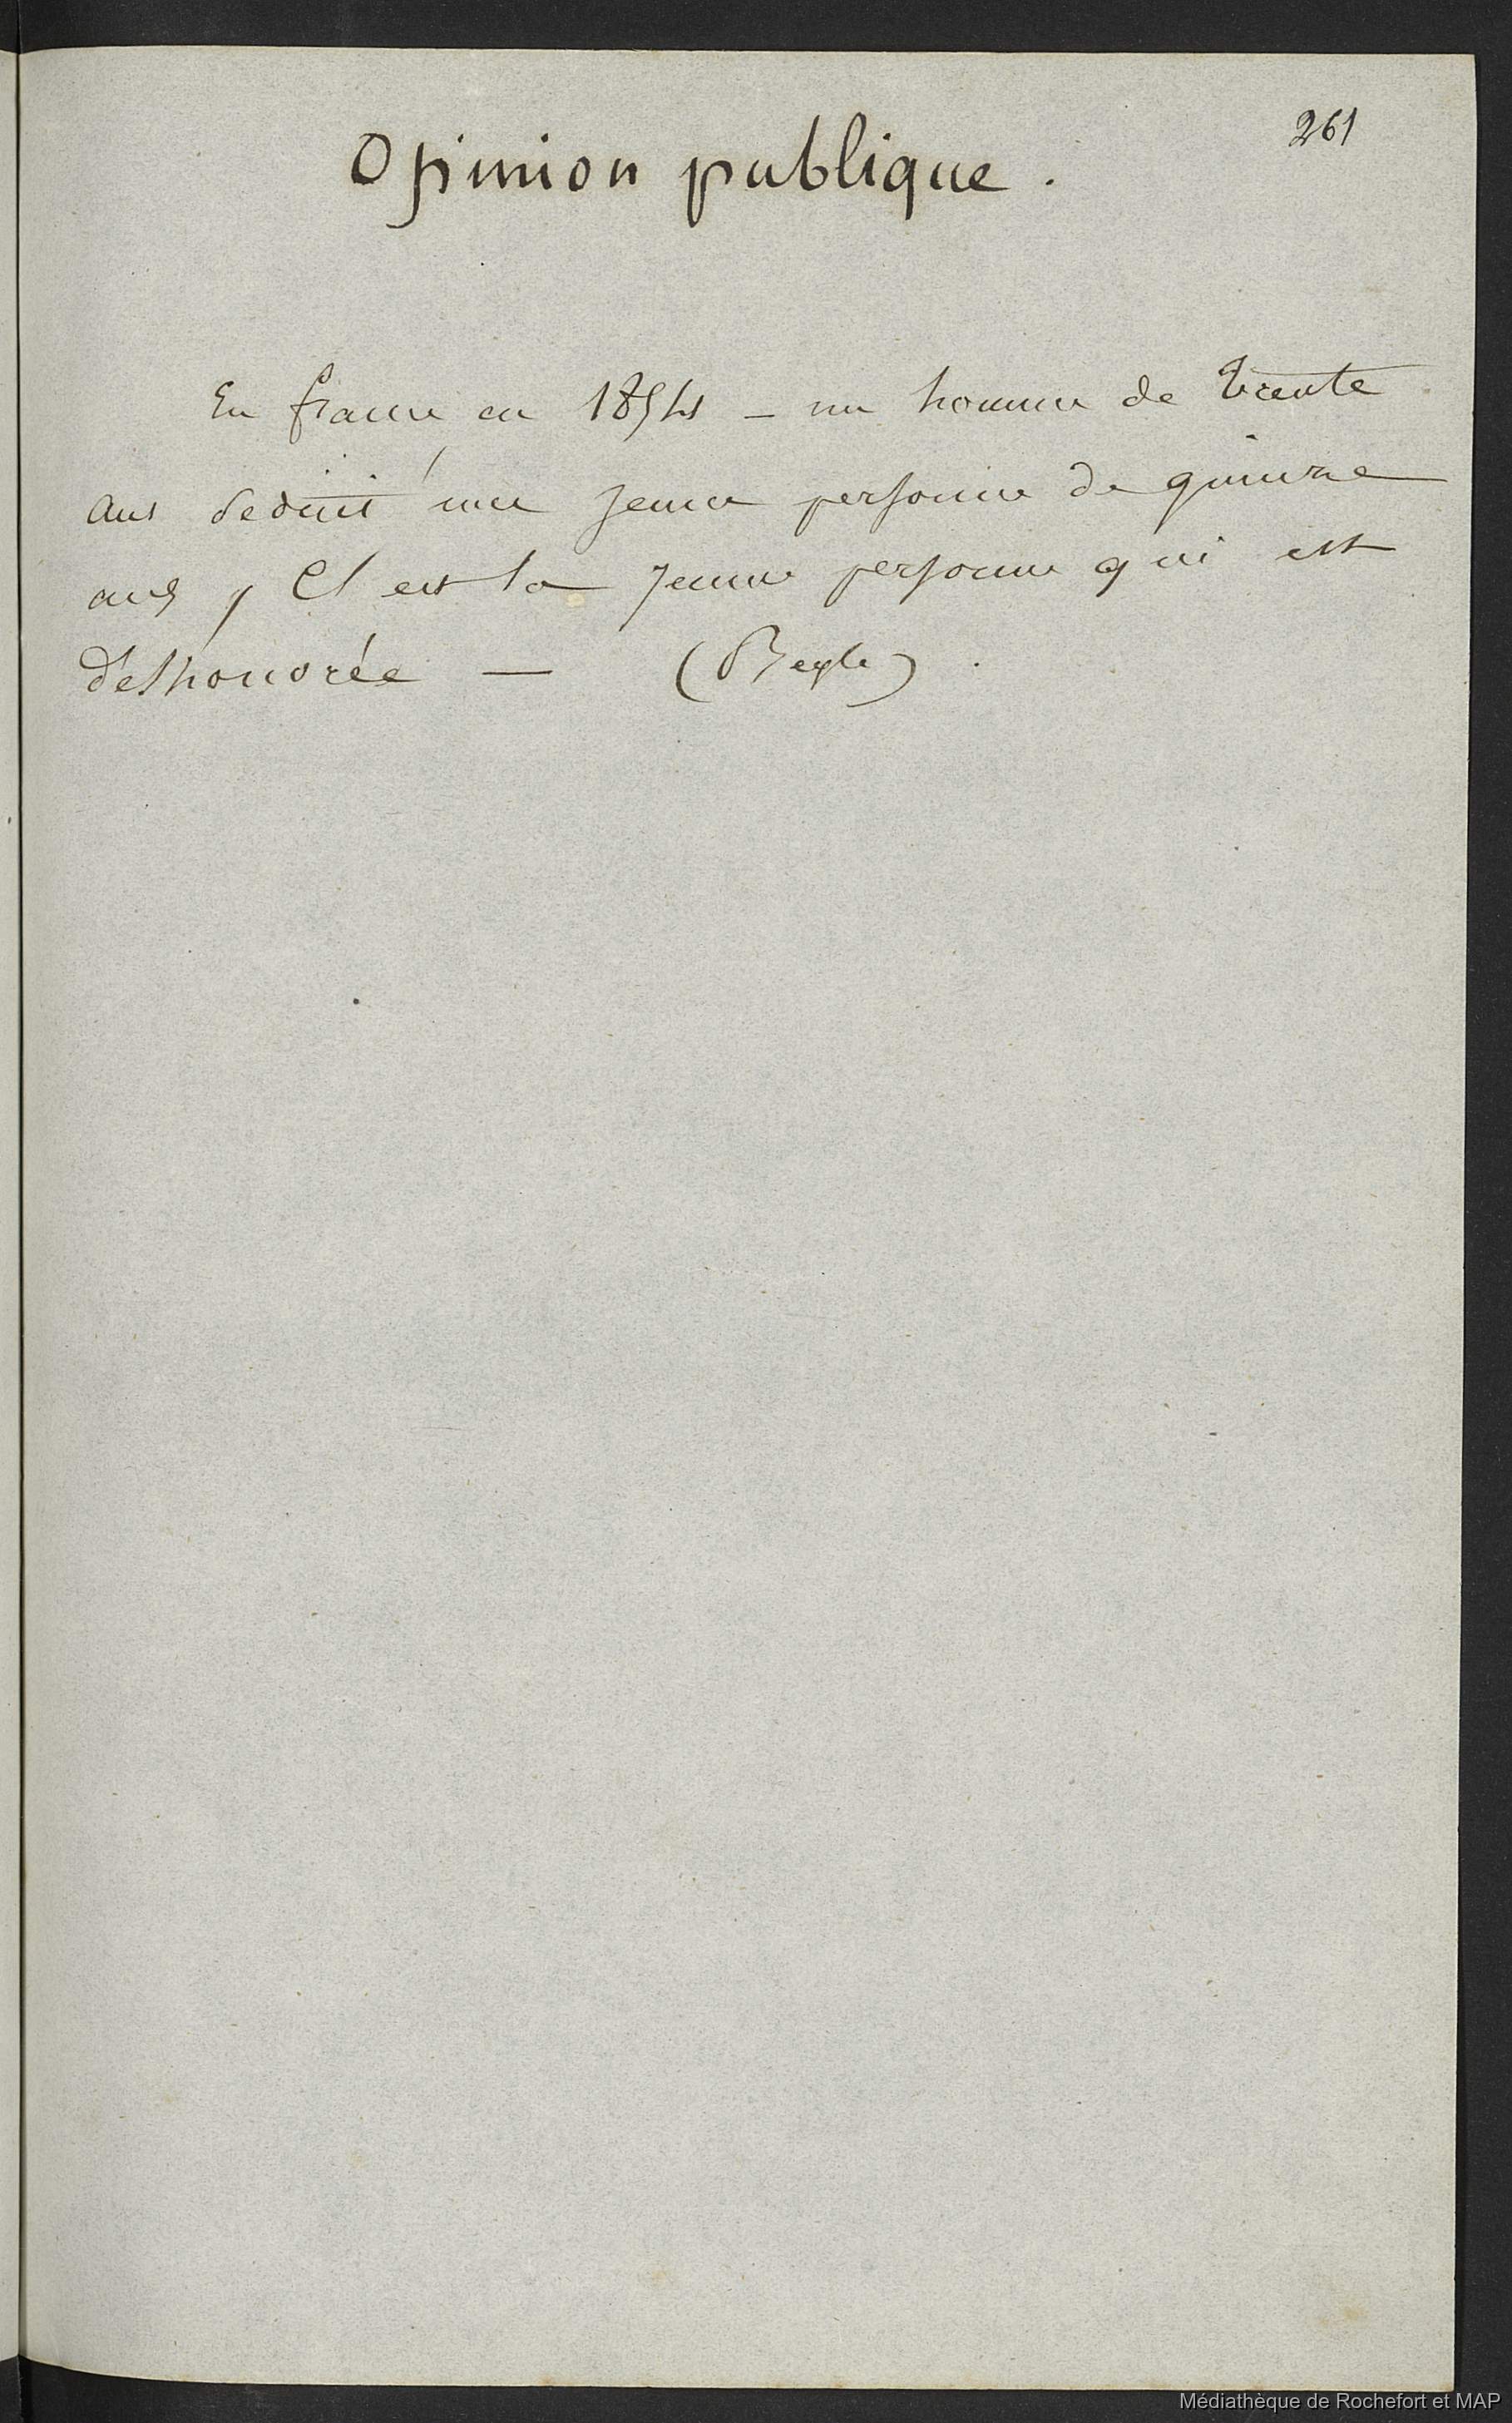 261
Opinion publique.
En france en 1854 - un homme de trente
ans séduit une jeune personne de quinze
ans, C'est la jeune personne qui est
déshonorée — (Beyle).
Médiathèque de Rochefort et MAP